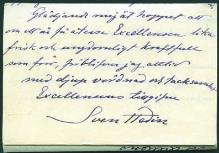 Glädjande mig åt hoppet att
om ett år få återse Excellensen lika
frisk och ungdomligt kraftfull
som förr, förblifver jag alltid
med djup vördnad och tacksamhet
Excellensens tillgifne
Sven Hedin